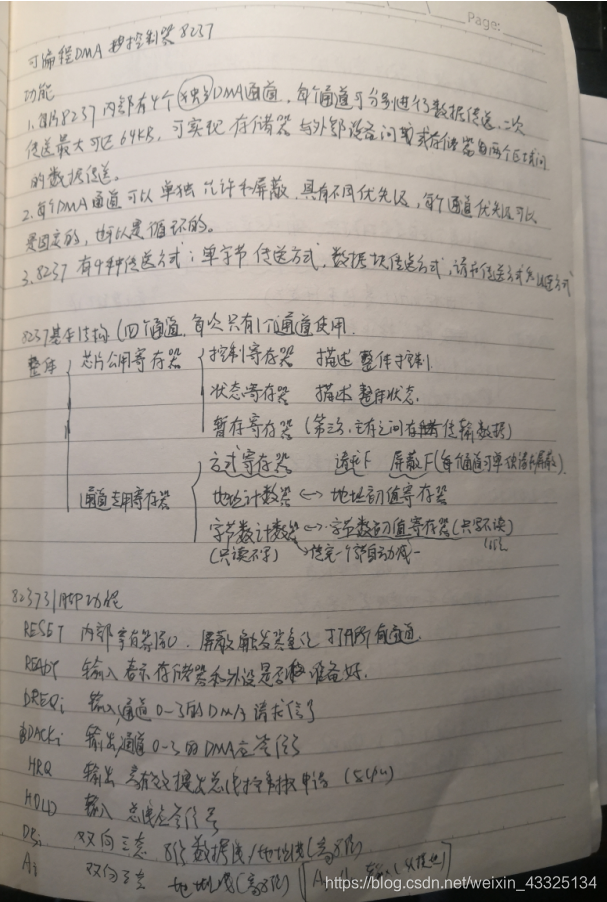 Page:
可编程DMA 控制器 8237
功能
1. 每片8237内部有4个独立DMA通道,每个通道可分别进行数据传送,一次
传送最大可达64KB,可实现存储器与外部设备间或存储器的两个区域间
的数据传送。
2. 每个DMA通道可以单独允许和屏蔽,具有不同优先级,每个通道优先级可以
是固定的,也可以是循环的。
3. 8237 有4种传送方式:单字节传送方式,数据块传送方式,请求传送方式
8237基本结构 (四个通道,每次只有1个通道使用.
整体 芯片公用寄存器 控制寄存器 描述整体控制.
状态寄存器 描述整体状态.
暂存寄存器 (第三次,主存之间存储传输数据)
通道专用寄存器 方式寄存器 请求F 屏蔽F(每个通道可单独请求屏蔽)
地址计数器 <-> 地址初值寄存器
字节数计数器 <-> 字节数初值寄存器(只写不读)
(只读不写) 传完一个字节自动减一
8237引脚功能
RESET 内部寄存器清0.屏蔽触发器置1 打开所有通道.
READY 输入 表示存储器和外设是否准备好.
DREQi 输入,通道0-3的DMA请求信号
DACKi 输出,通道0-3的DMA应答信号
HRQ 输出 总线控制权申请
HOLD 输入 总线应答信号
DBi 双向三态 8位数据线/地址线(高8位)
Ai 双向三态 地址线
https://blog.csdn.net/weixin_43325134